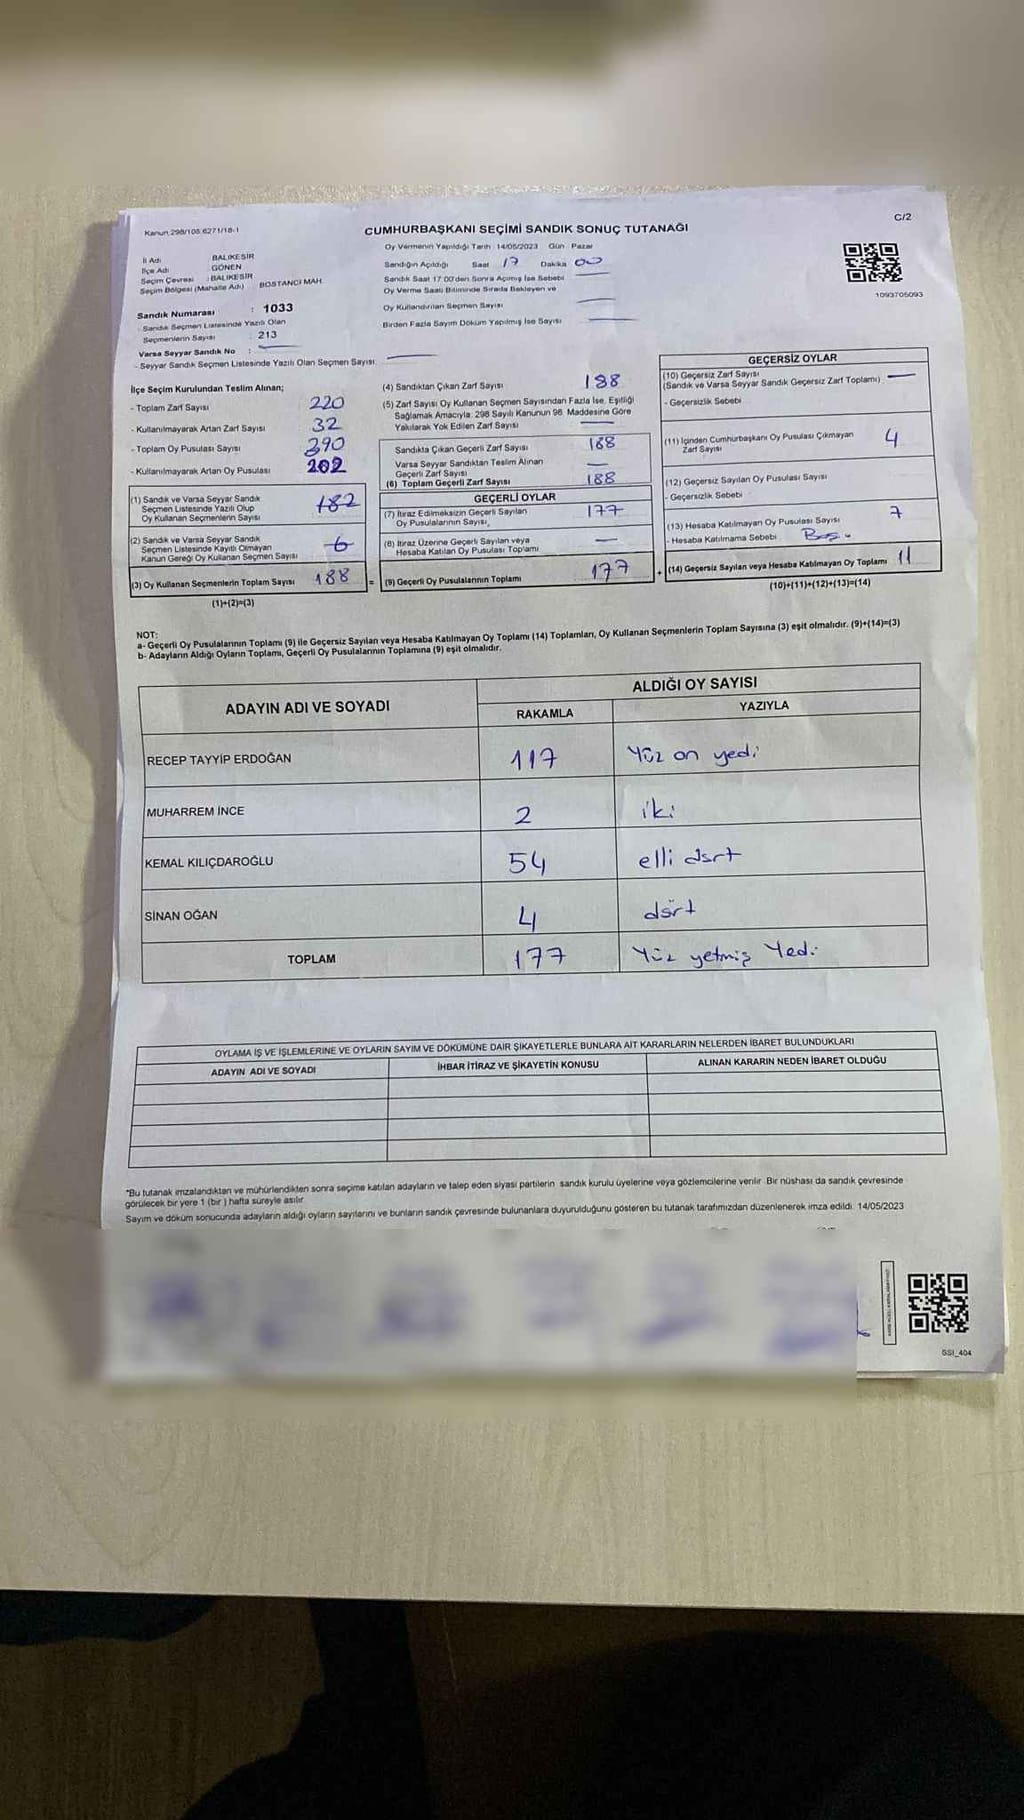 C/2
Kanun 298/105 6271/18-1
CUMHURBAŞKANI SEÇİMİ SANDIK SONUÇ TUTANAĞI
Oy Vermenin Yapıldığı Tarih : 14/05/2023 Gün : Pazar
İl Adı : BALIKESİR
İlçe Adı : GÖNEN
Seçim Çevresi : BALIKESİR
Seçim Bölgesi (Mahalle Adı) : BOSTANCI MAH.
Sandığın Açıldığı Saat 17 Dakika 00
Sandık Saat 17:00'den Sonra Açılmış İse Sebebi
Oy Verme Saati Bitiminde Sırada Bekleyen ve
Oy Kullandırılan Seçmen Sayısı
Birden Fazla Sayım Döküm Yapılmış İse Sayısı
1093705093
Sandık Numarası : 1033
- Sandık Seçmen Listesinde Yazılı Olan
Seçmenlerin Sayısı : 213
Varsa Seyyar Sandık No :
- Seyyar Sandık Seçmen Listesinde Yazılı Olan Seçmen Sayısı:
İlçe Seçim Kurulundan Teslim Alınan;
- Toplam Zarf Sayısı 220
- Kullanılmayarak Artan Zarf Sayısı 32
- Toplam Oy Pusulası Sayısı 390
- Kullanılmayarak Artan Oy Pusulası 202
(1) Sandık ve Varsa Seyyar Sandık
Seçmen Listesinde Yazılı Olup
Oy Kullanan Seçmenlerin Sayısı 182
(2) Sandık ve Varsa Seyyar Sandık
Seçmen Listesinde Kayıtlı Olmayan
Kanun Gereği Oy Kullanan Seçmen Sayısı 6
(3) Oy Kullanan Seçmenlerin Toplam Sayısı 188 =
(1)+(2)=(3)
(4) Sandıktan Çıkan Zarf Sayısı 188
(5) Zarf Sayısı Oy Kullanan Seçmen Sayısından Fazla İse, Eşitliği
Sağlamak Amacıyla; 298 Sayılı Kanunun 98. Maddesine Göre
Yakılarak Yok Edilen Zarf Sayısı
Sandıkta Çıkan Geçerli Zarf Sayısı 188
Varsa Seyyar Sandıktan Teslim Alınan
Geçerli Zarf Sayısı
(6) Toplam Geçerli Zarf Sayısı 188
GEÇERLİ OYLAR
(7) İtiraz Edilmeksizin Geçerli Sayılan
Oy Pusulalarının Sayısı, 177
(8) İtiraz Üzerine Geçerli Sayılan veya
Hesaba Katılan Oy Pusulası Toplamı
(9) Geçerli Oy Pusulalarının Toplamı 177 +
GEÇERSİZ OYLAR
(10) Geçersiz Zarf Sayısı
(Sandık ve Varsa Seyyar Sandık Geçersiz Zarf Toplamı)
- Geçersizlik Sebebi
(11) İçinden Cumhurbaşkanı Oy Pusulası Çıkmayan
Zarf Sayısı 4
(12) Geçersiz Sayılan Oy Pusulası Sayısı
- Geçersizlik Sebebi
(13) Hesaba Katılmayan Oy Pusulası Sayısı 7
- Hesaba Katılmama Sebebi
(14) Geçersiz Sayılan veya Hesaba Katılmayan Oy Toplamı 11
(10)+(11)+(12)+(13)=(14)
NOT:
a- Geçerli Oy Pusulalarının Toplamı (9) ile Geçersiz Sayılan veya Hesaba Katılmayan Oy Toplamı (14) Toplamları, Oy Kullanan Seçmenlerin Toplam Sayısına (3) eşit olmalıdır. (9)+(14)=(3)
b- Adayların Aldığı Oyların Toplamı, Geçerli Oy Pusulalarının Toplamına (9) eşit olmalıdır.
ADAYIN ADI VE SOYADI
ALDIĞI OY SAYISI
RAKAMLA YAZIYLA
RECEP TAYYİP ERDOĞAN 117 Yüz on yedi
MUHARREM İNCE 2 iki
KEMAL KILIÇDAROĞLU 54 elli dört
SİNAN OĞAN 4 dört
TOPLAM 177 Yüz yetmiş Yedi
OYLAMA İŞ VE İŞLEMLERİNE VE OYLARIN SAYIM VE DÖKÜMÜNE DAİR ŞİKAYETLERLE BUNLARA AİT KARARLARIN NELERDEN İBARET BULUNDUKLARI
ADAYIN ADI VE SOYADI İHBAR İTİRAZ VE ŞİKAYETİN KONUSU ALINAN KARARIN NEDEN İBARET OLDUĞU
*Bu tutanak imzalandıktan ve mühürlendikten sonra seçime katılan adayların ve talep eden siyasi partilerin sandık kurulu üyelerine veya gözlemcilerine verilir. Bir nüshası da sandık çevresinde
görülecek bir yere 1 (bir) hafta süreyle asılır.
Sayım ve döküm sonucunda adayların aldığı oyların sayılarını ve bunların sandık çevresinde bulunanlara duyurulduğunu gösteren bu tutanak tarafımızdan düzenlenerek imza edildi. 14/05/2023
SSI_404